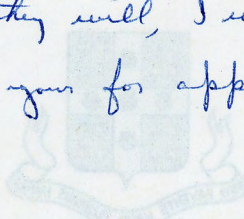 they will, I
your for app